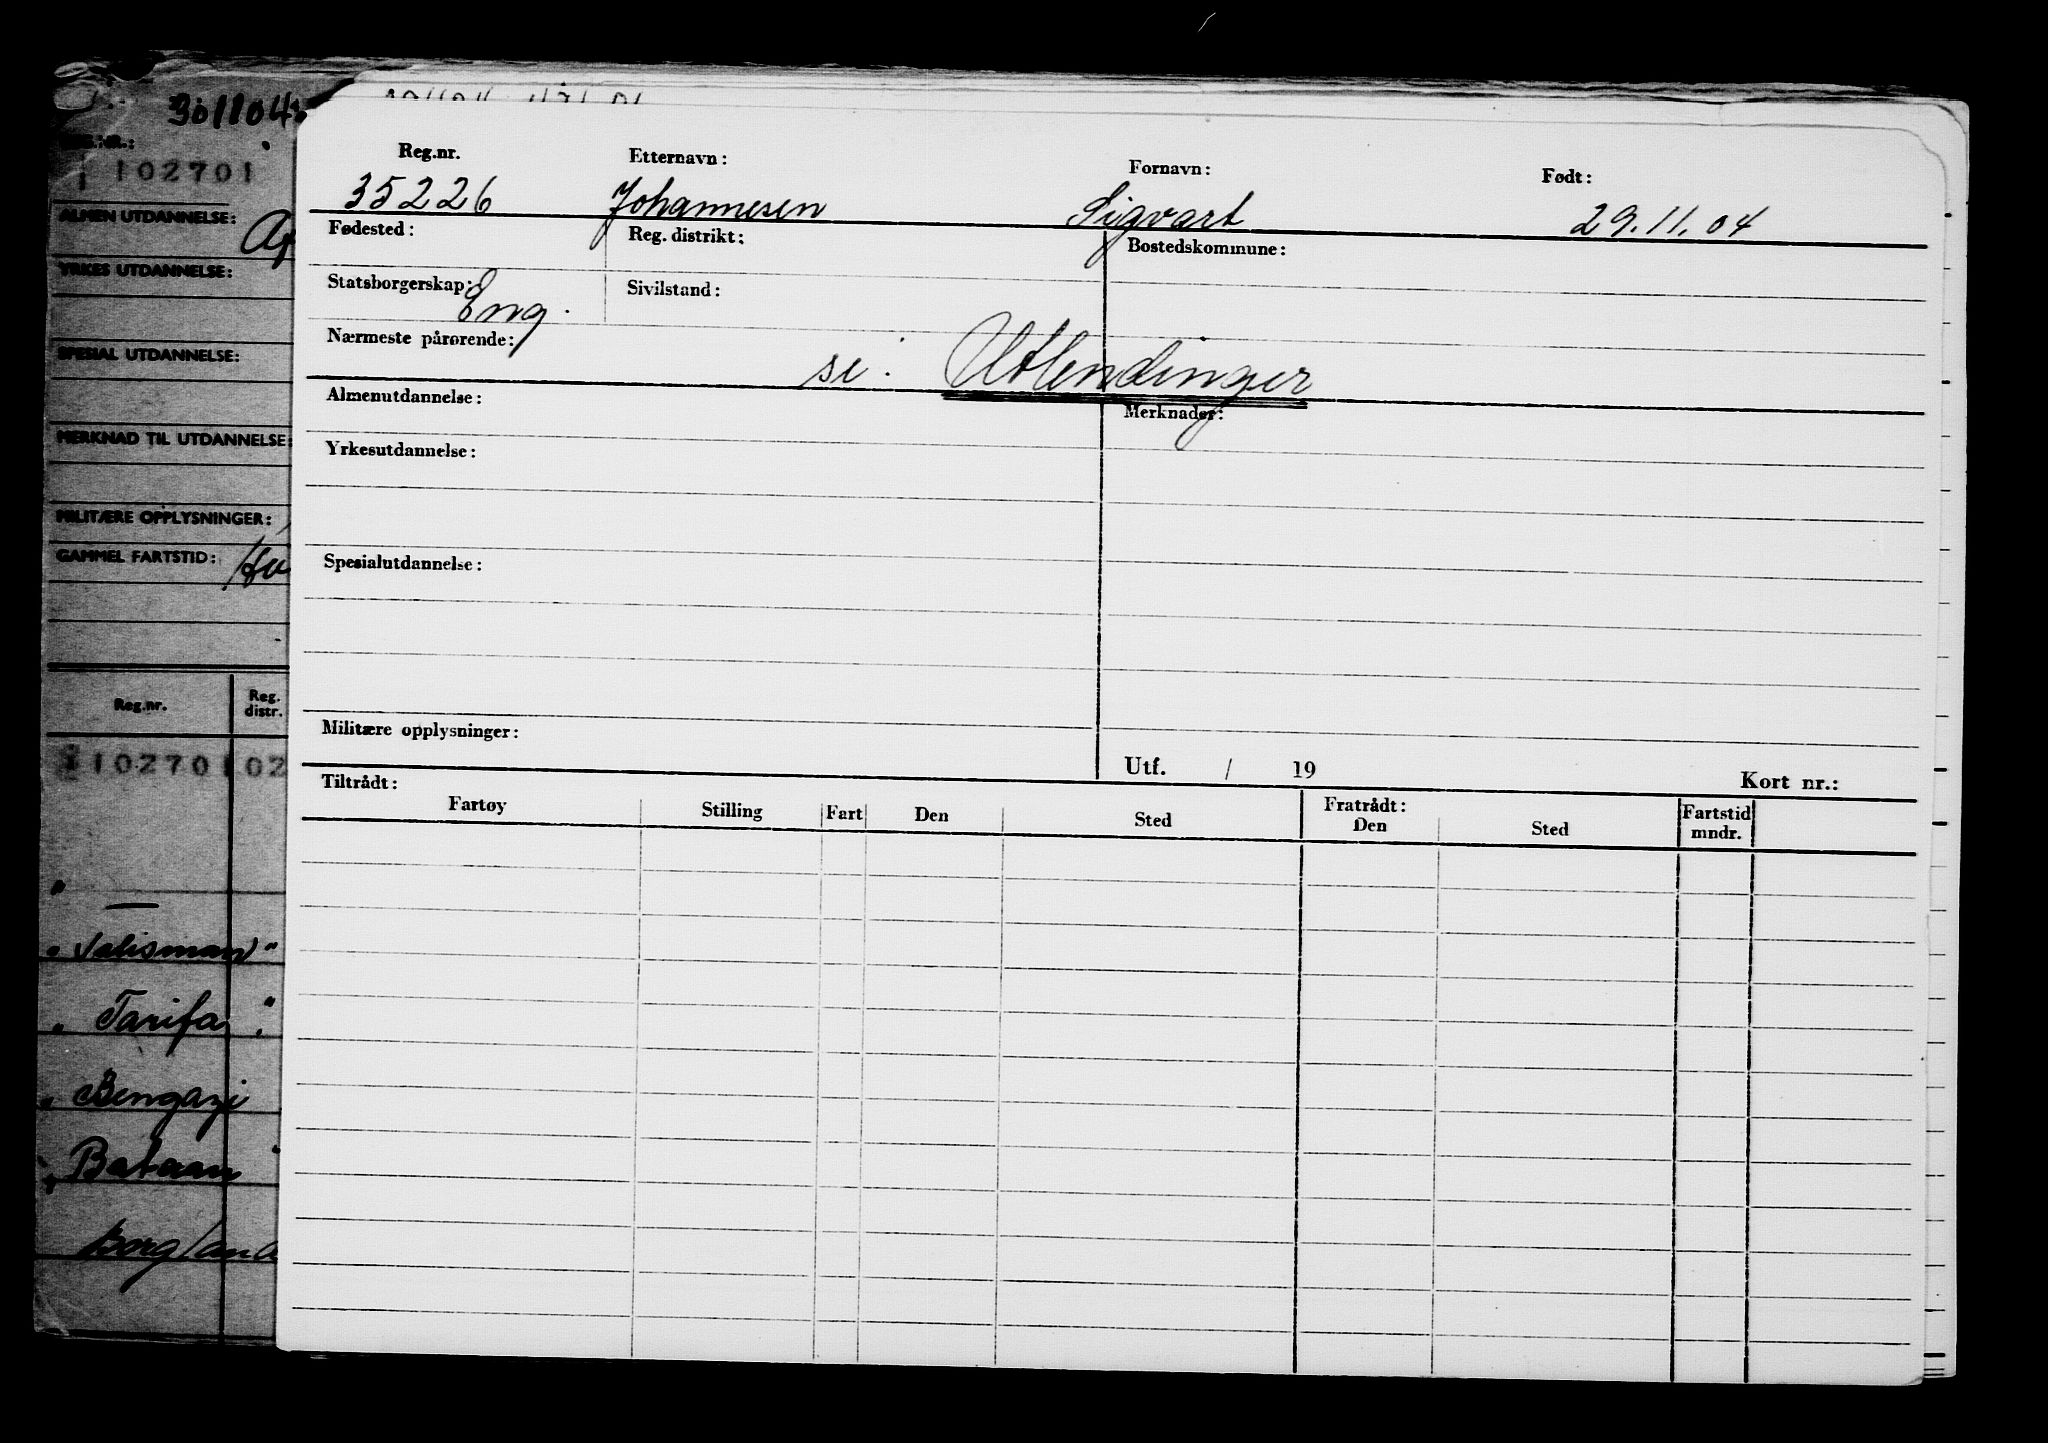 301104
102701
ALMEN UTDANNELSE:
YRKES UTDANNELSE:
SPESIAL UTDANNELSE:
MERKNAD TIL UTDANNELSE:
MILITÆRE OPPLYSNINGER:
GAMMEL FARTSTID:
Reg.nr. Reg. distr.
102701 02
" Talisman "
" Tarifa "
" Bengazi
" Bataan "
Borgland
Reg.nr. Etternavn: Fornavn: Født:
35226 Johannesen Sigvart 29.11.04
Fødested: Reg. distrikt: Bostedskommune:
Statsborgerskap: Eng. Sivilstand:
Nærmeste pårørende:
se: Utlendinger
Almenutdannelse: Merknader:
Yrkesutdannelse:
Spesialutdannelse:
Militære opplysninger:
Utf. / 19 Kort nr.:
Tiltrådt: Fratrådt:
Fartøy Stilling Fart Den Sted Den Sted Fartstid mndr.